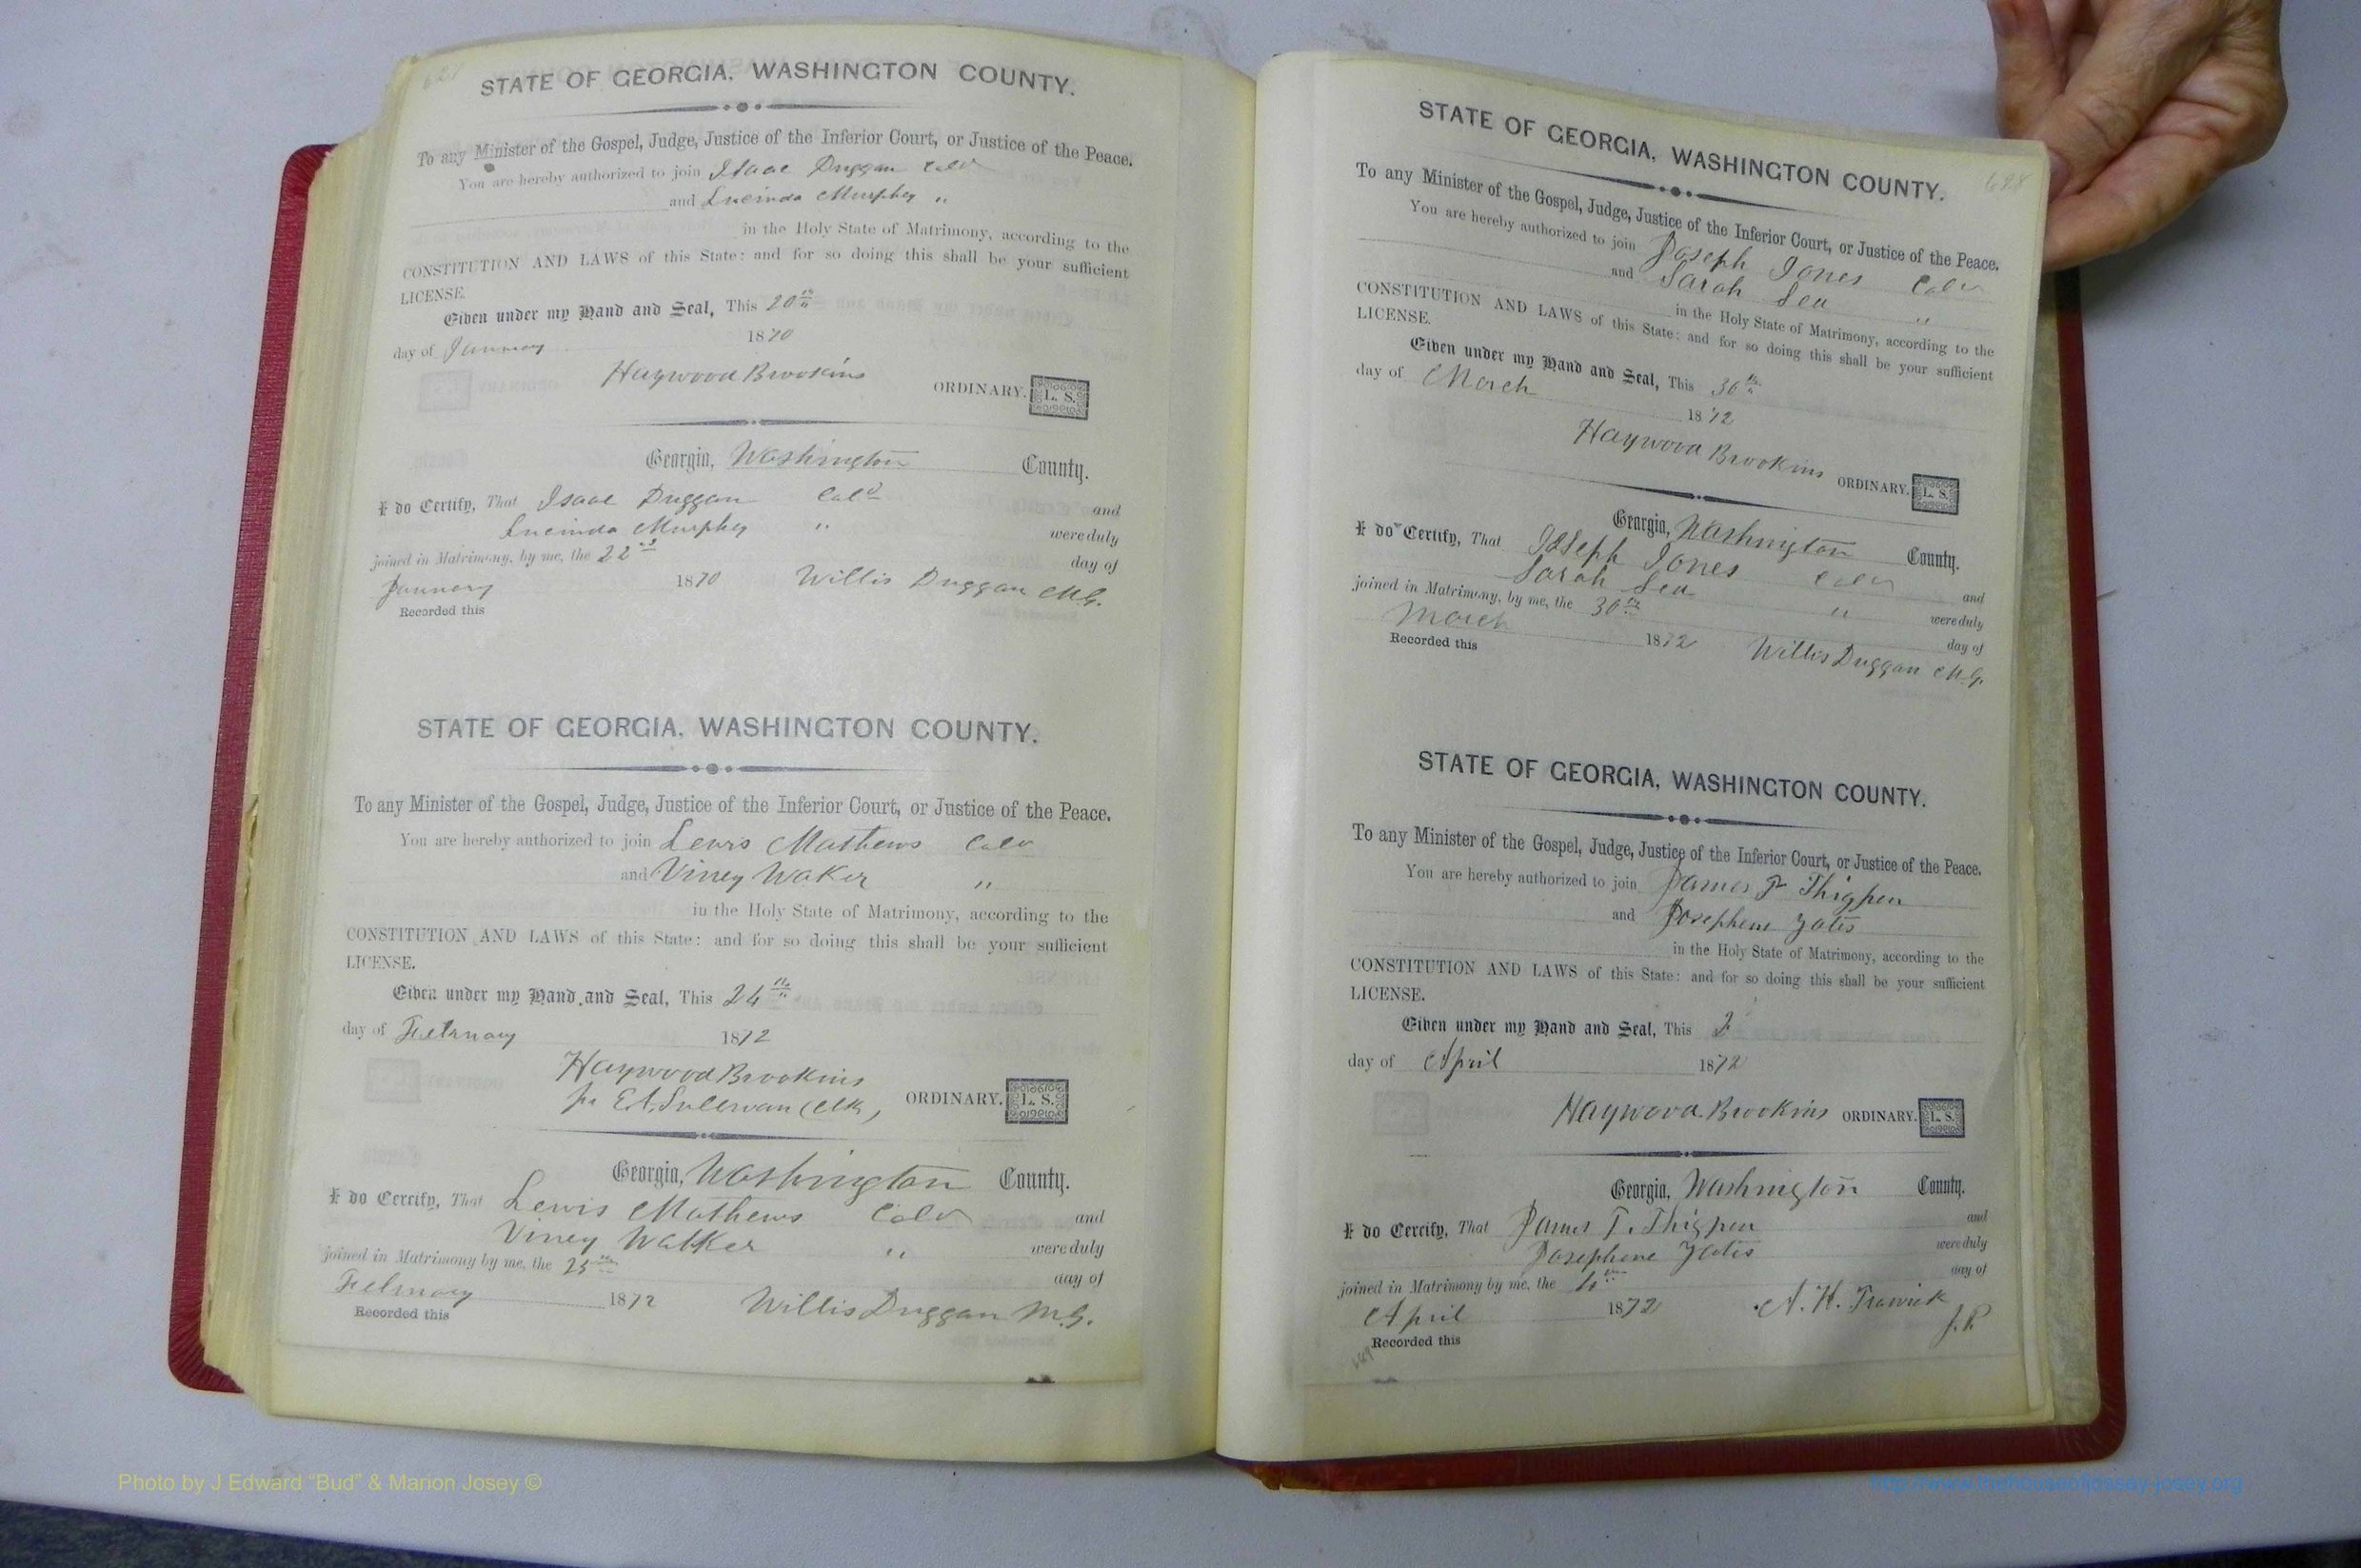 627
STATE OF GEORGIA, WASHINGTON COUNTY.
To any Minister of the Gospel, Judge, Justice of the Inferior Court, or Justice of the Peace.
You are hereby authorized to join Isaac Duggan Cold
and Lucinda Murphey "
in the Holy State of Matrimony, according to the
CONSTITUTION AND LAWS of this State: and for so doing this shall be your sufficient
LICENSE.
Given under my Hand and Seal, This 20th
day of January 1870
Haywood Brookins ORDINARY. L. S.
Georgia, Washington County.
I do Certify, That Isaac Duggan Cold and
Lucinda Murphey " were duly
joined in Matrimony, by me, the 22nd day of
January 1870 Willis Duggan M.G.
Recorded this
STATE OF GEORGIA, WASHINGTON COUNTY.
To any Minister of the Gospel, Judge, Justice of the Inferior Court, or Justice of the Peace.
You are hereby authorized to join Lewis Mathews Cold
and Viney Waker "
in the Holy State of Matrimony, according to the
CONSTITUTION AND LAWS of this State: and for so doing this shall be your sufficient
LICENSE.
Given under my Hand and Seal, This 24th
day of February 1872
Haywood Brookins
pr E.A. Sullivan (Clk) ORDINARY. L. S.
Georgia, Washington County.
I do Certify, That Lewis Mathews Cold and
Viney Walker " were duly
joined in Matrimony by me, the 25th day of
February 1872 Willis Duggan M.G.
Recorded this
628
STATE OF GEORGIA, WASHINGTON COUNTY.
To any Minister of the Gospel, Judge, Justice of the Inferior Court, or Justice of the Peace.
You are hereby authorized to join Joseph Jones Cold
and Sarah Lea "
in the Holy State of Matrimony, according to the
CONSTITUTION AND LAWS of this State: and for so doing this shall be your sufficient
LICENSE.
Given under my Hand and Seal, This 30th
day of March 1872
Haywood Brookins ORDINARY. L. S.
Georgia, Washington County.
I do Certify, That Joseph Jones Cold and
Sarah Lea " were duly
joined in Matrimony, by me, the 30th day of
March 1872 Willis Duggan M.G.
Recorded this
STATE OF GEORGIA, WASHINGTON COUNTY.
To any Minister of the Gospel, Judge, Justice of the Inferior Court, or Justice of the Peace.
You are hereby authorized to join James T Thigpen
and Josephene Yates
in the Holy State of Matrimony, according to the
CONSTITUTION AND LAWS of this State: and for so doing this shall be your sufficient
LICENSE.
Given under my Hand and Seal, This 2
day of April 1872
Haywood Brookins ORDINARY. L. S.
Georgia, Washington County.
I do Certify, That James T. Thigpen and
Josephene Yates were duly
joined in Matrimony by me, the day of
April 1872 A. H. Trawick
J.P
Recorded this
Photo by J Edward "Bud" & Marion Josey ©
http://www.thehouseofjossey-josey.org